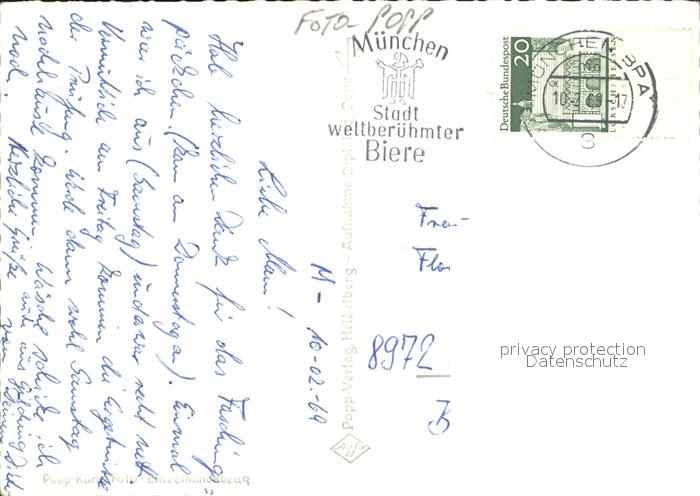 FOTO- POPP
München
Stadt
weltberühmter
Biere
Deutsche Bundespost
20
MÜNCHEN BPA
10.-2.69-17
LORSCH
M - 10-02-69
Liebe Mami!
Hab herzlichen Dank für das Faschings=
päckchen. (Kam am Donnerstag an). Einmal
war ich aus (Samstag) und war recht nett
Vermutlich am Freitag kommen die Ergebnisse
der Prüfung. Werde dann wohl Samstag
nachhause kommen. Wäsche schicke ich
noch. Herzliche Grüße
Frau
8972
B
Popp-Verlag, Heidelberg
Agfa
Popp-Karte Foto-Einzelhandabzug
privacy protection
Datenschutz